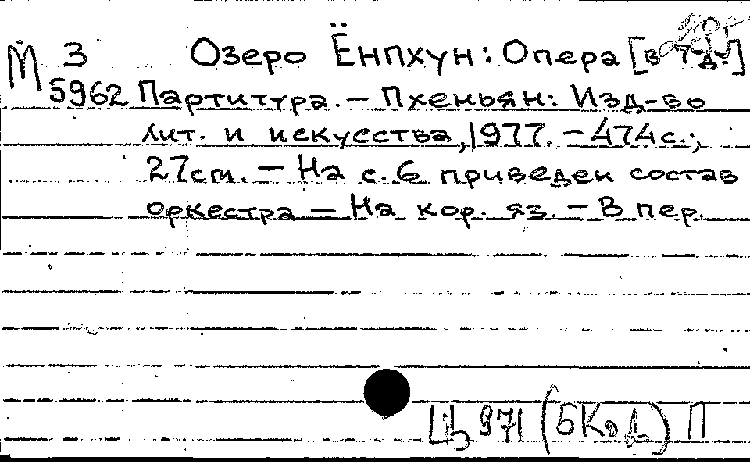 М 3 Озеро Ёнпхун: Опера [в 7 д.]
5962 Партитура. – Пхеньян: Изд-во
лит. и искусства, 1977. – 474 с.;
27 cm. – На с. 6 приведен состав
оркестра – На кор. яз. – В пер.
Ць 971 (БКоД) П